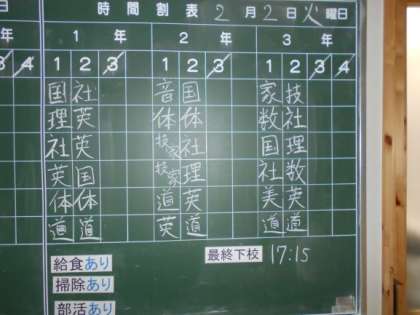 日 時間割表 2月2日火曜日
年 1年 2年 3年
3 4 1 2 3 1 2 3 1 2 3
国 社 音 国 家 技
理 英 体 体 数 社
社 英 技家 社 国 理
英 国 技家 理 社 数
体 体 道 英 美 英
道 道 英 道 道 道
給食あり 最終下校 17:15
掃除あり
部活あり